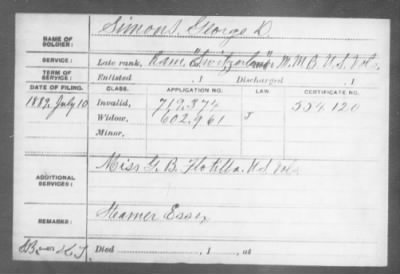 NAME OF SOLDIER: Simons, George D.
SERVICE: Late rank, Ram "Switzerland" M. M. B. U.S. Vols.
TERM OF SERVICE: Enlisted , 1 Discharged , 1
DATE OF FILING. CLASS. APPLICATION NO. LAW. CERTIFICATE NO.
1882, July 10 Invalid, 712.374 554.120
Widow, 602.961 J
Minor,
ADDITIONAL SERVICES: Miss G. B. Flotilla. U.S. Vols
REMARKS: Steamer Essex
Died , 1 , at